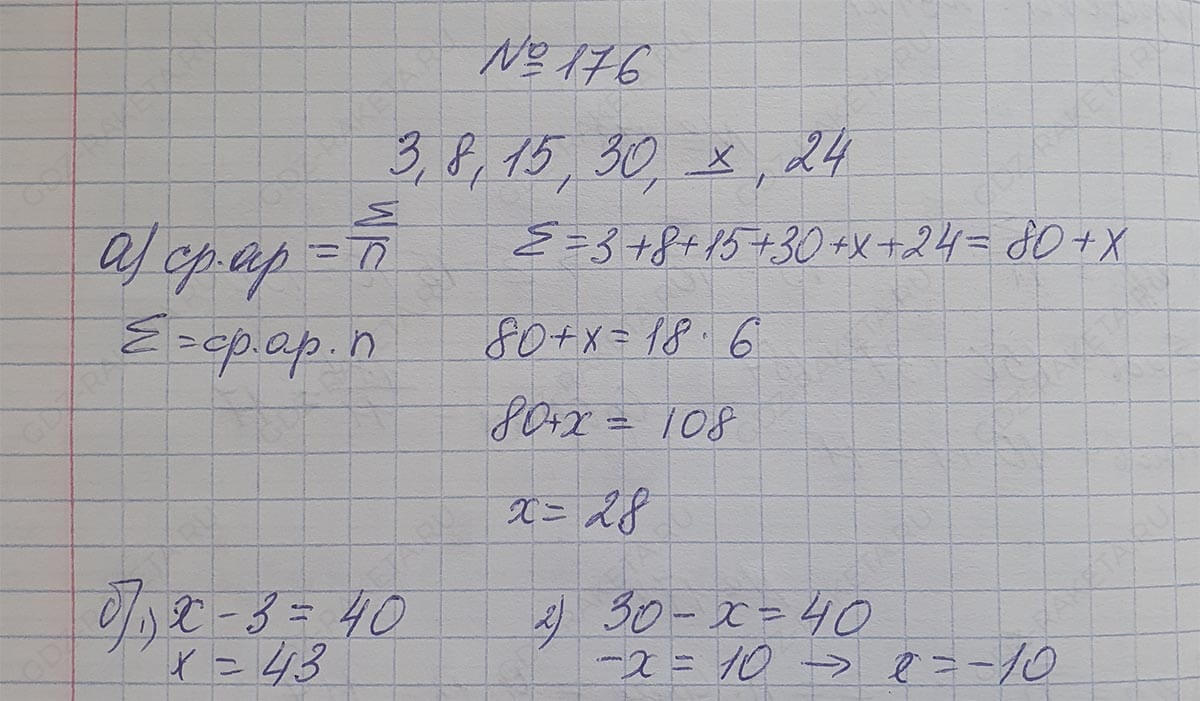 № 176
3, 8, 15, 30, x, 24
а) ср.ар = Σ/n Σ = 3+8+15+30+x+24 = 80+x
Σ = ср.ар. n 80+x = 18 · 6
80+x = 108
x = 28
б) 1) x - 3 = 40 2) 30 - x = 40
x = 43 -x = 10 → x = -10